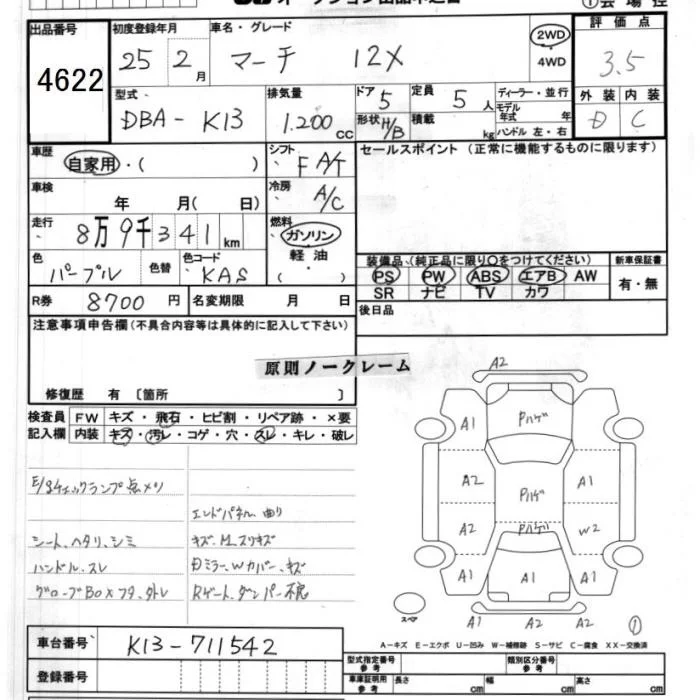 オークション出品申込書
①会場控
出品番号 初度登録年月 車名・グレード 2WD 評価点
4622 25 2月 マーチ 12X 4WD 3.5
型式 排気量 ドア 5 定員 5人 ディーラー・並行 外装 内装
DBA- K13 1.200cc 形状 H/B 積載 kg モデル年式 年 D C
ハンドル 左・右
車歴 自家用・( ) シフト F A/T セールスポイント (正常に機能するものに限ります)
車検 年 月( 日) 冷房 A/C
走行 8万9千341km 燃料 ガソリン
軽油
( )
色 パープル 色替 色コード KAS 装備品(純正品に限り○をつけてください) 新車保証書
PS PW ABS エアB AW 有・無
SR ナビ TV カワ
R券 8700円 名変期限 月 日 後日品
注意事項申告欄(不具合内容等は具体的に記入して下さい)
原則ノークレーム
修復歴 有〔箇所 〕
検査員 FW キズ・飛石・ヒビ割・リペア跡・×要
記入欄 内装 キズ・汚レ・コゲ・穴・スレ・キレ・破レ
E/gチェックランプ点メツ
エンドパネル曲り
シート、ヘタリ、シミ キズ、M、スリキズ
ハンドル、スレ Dミラー、Wカバー、キズ
グローブBOXフタ、外レ Rゲート、ダンパー不良
A2
A1 Pハゲ A1
A2 Pハゲ A1
A2 Pハゲ W2
A1 A1 A1
スペア A1 A2 A2 ①
A-キズ E-エクボ U-凹み W-補修跡 S-サビ C-腐食 XX-交換済
車台番号 K13-711542
登録番号
型式指定番号 参考 類別区分番号 参考
車庫証明用 参考 長さ cm 幅 cm 高さ cm